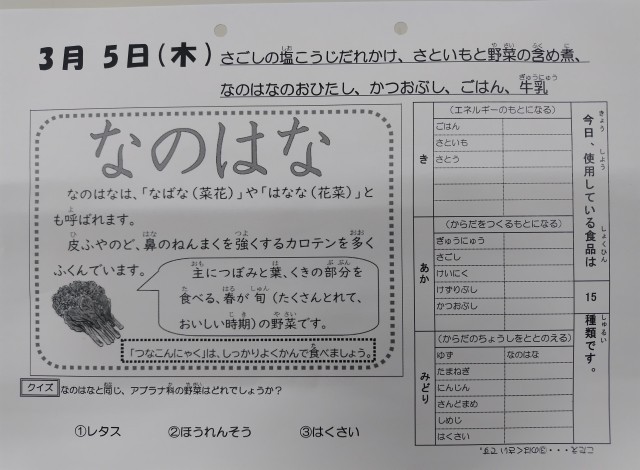 3月 5日(木) さごしの塩こうじだれかけ、さといもと野菜の含め煮、
なのはなのおひたし、かつおぶし、ごはん、牛乳
なのはな
なのはなは、「なばな(菜花)」や「はなな(花菜)」と
も呼ばれます。
皮ふやのど、鼻のねんまくを強くするカロテンを多く
ふくんでいます。
主につぼみと葉、くきの部分を
食べる、春が旬(たくさんとれて、
おいしい時期)の野菜です。
「つなこんにゃく」は、しっかりよくかんで食べましょう。
クイズ
なのはなと同じ、アブラナ科の野菜はどれでしょうか?
①レタス ②ほうれんそう ③はくさい
今日、使用している食品は
15
種類です。
き
(エネルギーのもとになる)
ごはん
さといも
さとう
あか
(からだをつくるもとになる)
ぎゅうにゅう
さごし
けいにく
けずりぶし
かつおぶし
みどり
(からだのちょうしをととのえる)
ゆず なのはな
たまねぎ
にんじん
さんどまめ
しめじ
はくさい
こたえ・・・③のはくさいです。